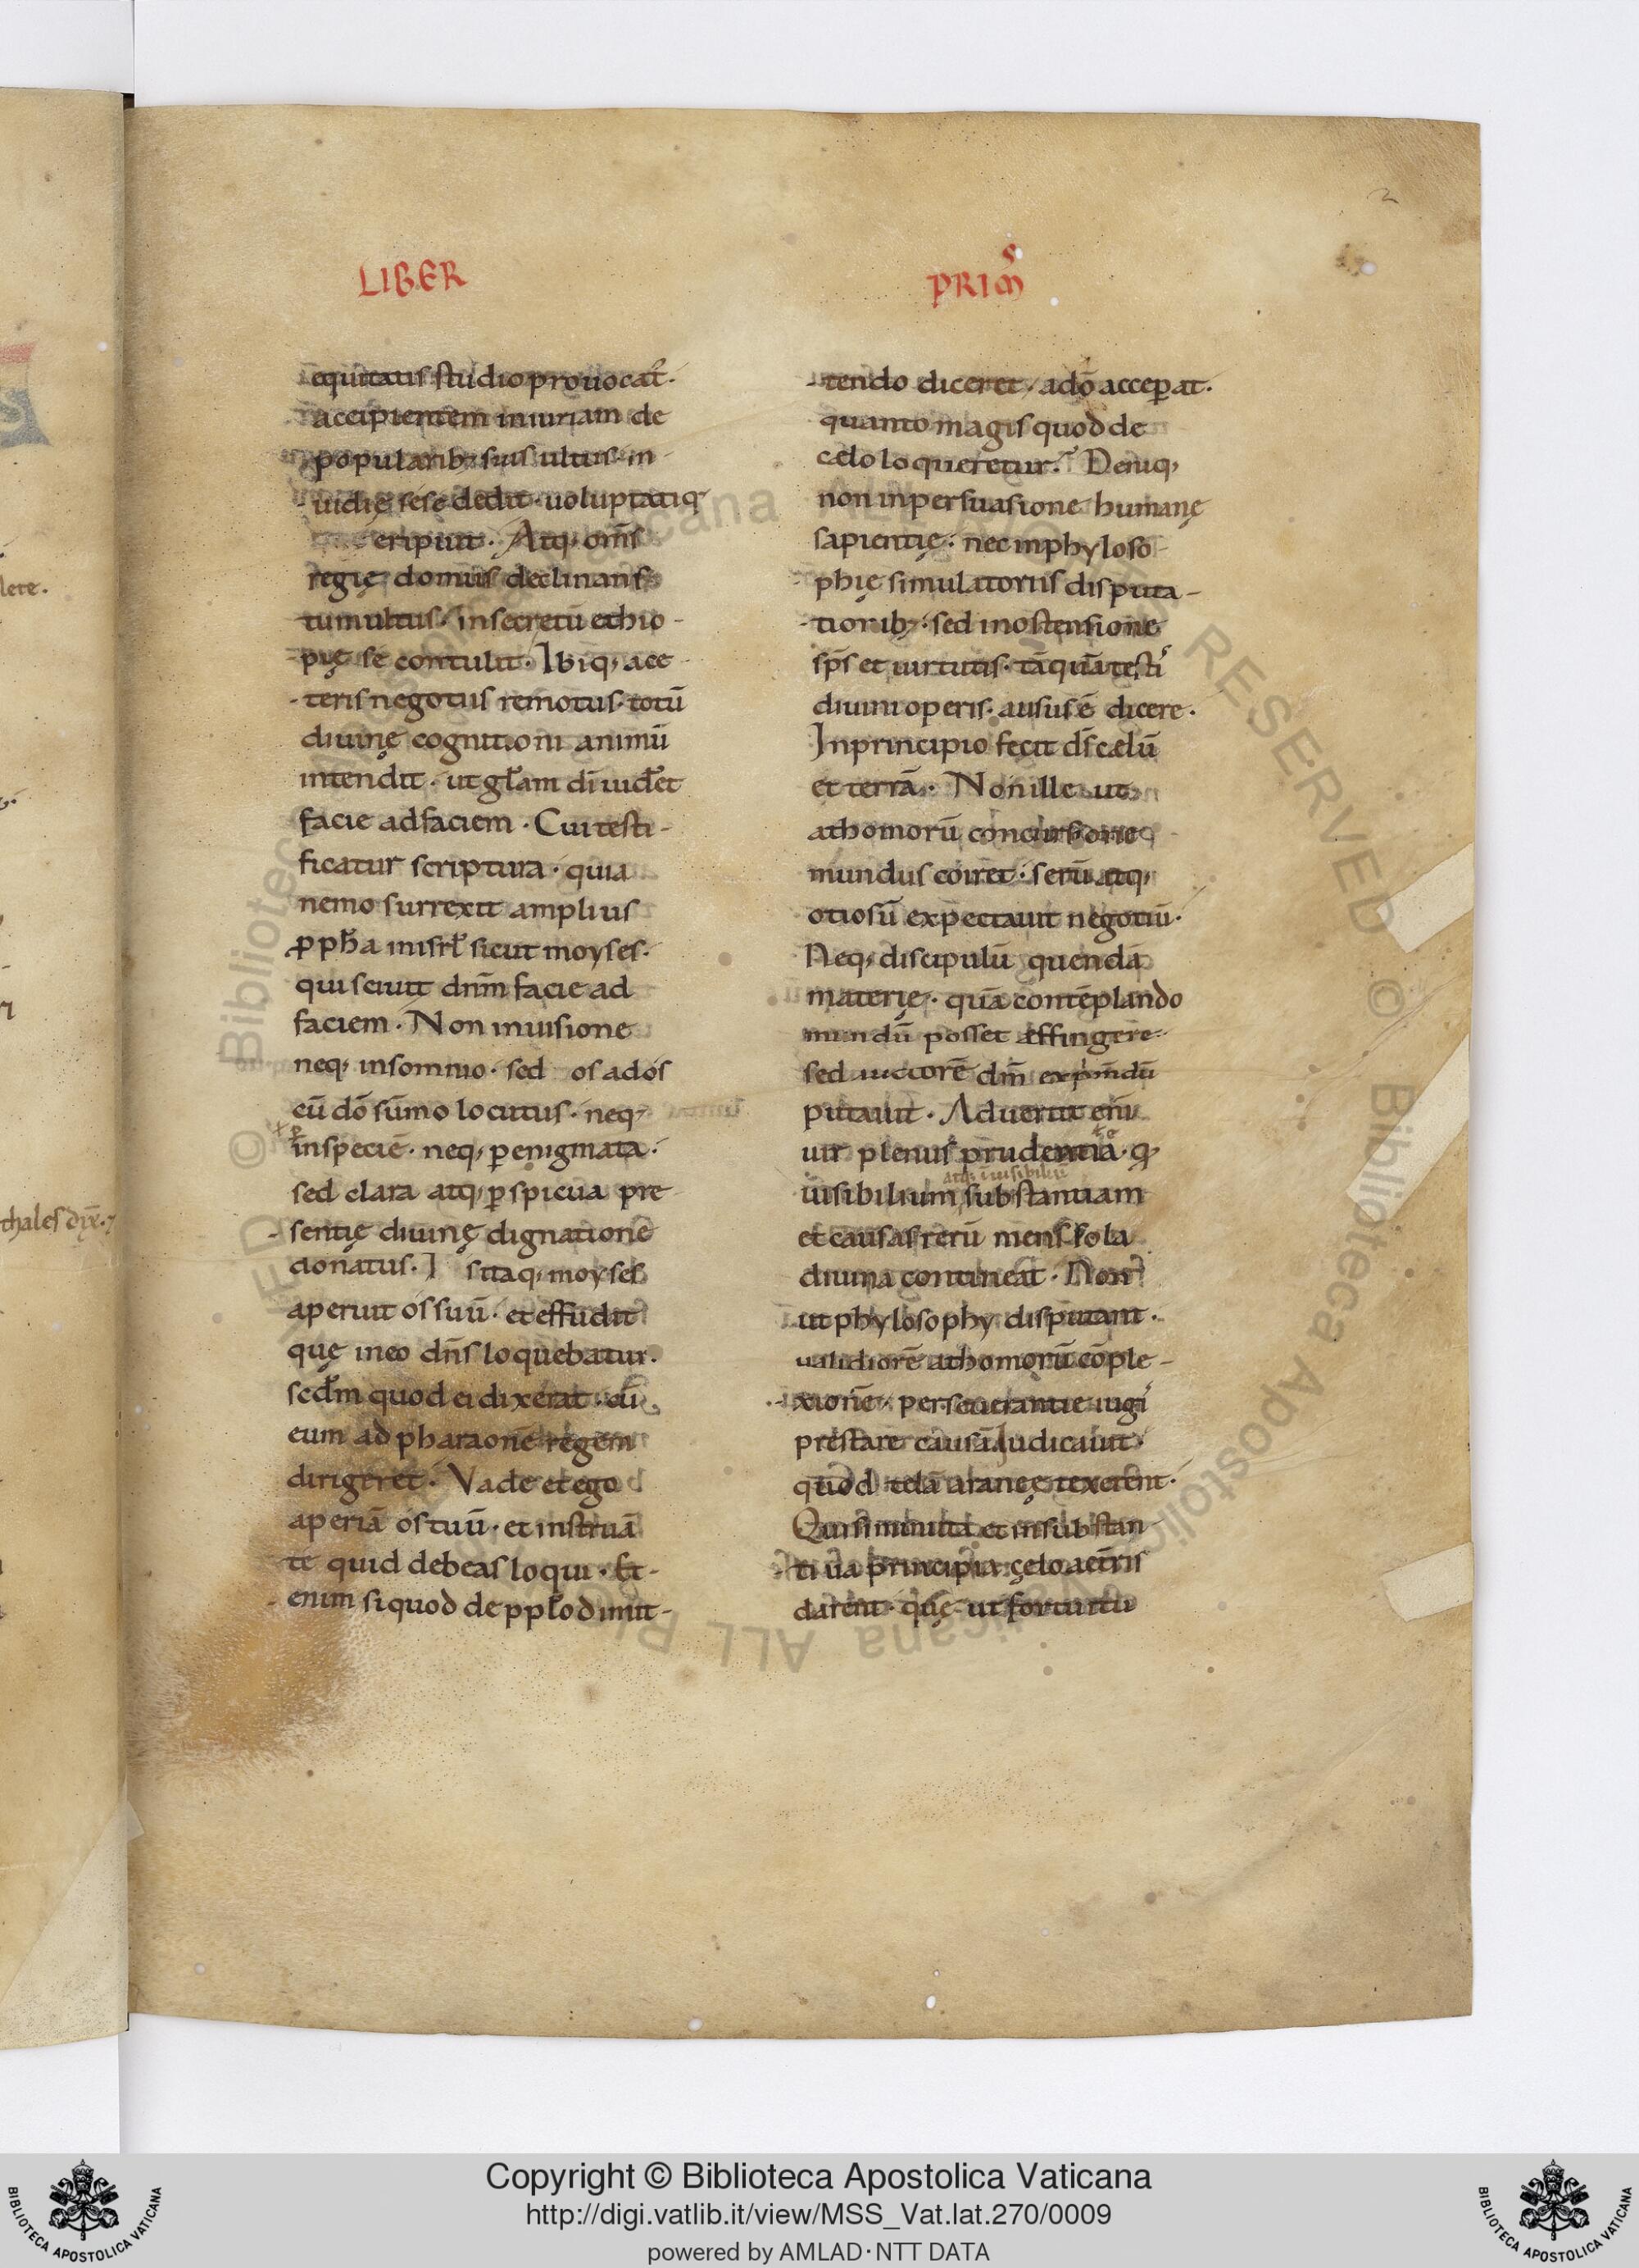 LIBER
PRIM᷒
2
equitatis studio prouocat᷒.
accipientem iniuriam de
popularib; suis ultus. in
uidię sese dedit. uoluptatiq;
eripuit. Atq; om̄s
regię domus declinans
tumultus. insecretū ethio-
pię se contulit. Ibiq; ace
teris negotiis remotus. totū
diuinę cognitioni animū
intendit. ut gl̄am dī uid̄et
facie adfaciem. Cui testi-
ficatur scriptura. quia
nemo surrexit amplius
ꝓph̄a inisrł sicut moyses.
qui sciuit dn̄m facie ad
faciem. Non inuisione
neq; insomnio. sed os ados
cū dō sūmo locutus. neq;
inspeciē. neq; ꝑ enigmata.
sed clara atq; ꝑspicua pre
sentię diuinę dignatione
donatus. I staq; moyses
aperuit os suū. et effudit
quę ineo dn̄s loquebatur.
scd̄m quod ei dixerat. cū
eum ad pharaonē regem
dirigeret. Vade et ego
aperiā os tuū. et instruā
te quid debeas loqui. Et-
enim si quod de ppłō dimit-
tendo diceret, adō acceꝑat.
quanto magis quod de
cælo loqueretur. Deniq;
non inpersuasione humanę
sapientię. nec inphyloso
phię simulatoriis disputa-
tionib; sed inostensione
sp̄s et uirtutis. tāquā testi᷒
diuini operis. ausus ē dicere.
Inprincipio fecit d̄s cælū
et terrā. Non ille ut
athomorū concursione
mundus coiret. serū atq;
otiosū expectauit negotiū.
Neq; discipulū quendā
materię. quā contēplando
mundū posset effingere.
sed auctorē dm̄ exp̄mdū
putauit. Aduertit eni
uir plenus prudentiā. q᷒
uisibilium substantiam
atq; inuisibiliū
et causas rerū mens sola
diuina contineat. Non
ut phylosophy disputant.
ualidiorē athomorū cōple-
xionē. perseuerantie iugi
prestare causā. Iudicauit
quod telā aranęę texerent.
Qui si minuta et insubstan
tiua principia cęlo ac terris
darent. quę ut fortuitu
thales dix̄.
lete.
Copyright © Biblioteca Apostolica Vaticana
http://digi.vatlib.it/view/MSS_Vat.lat.270/0009
powered by AMLAD·NTT DATA
BIBLIOTECA APOSTOLICA VATICANA
BIBLIOTECA APOSTOLICA VATICANA